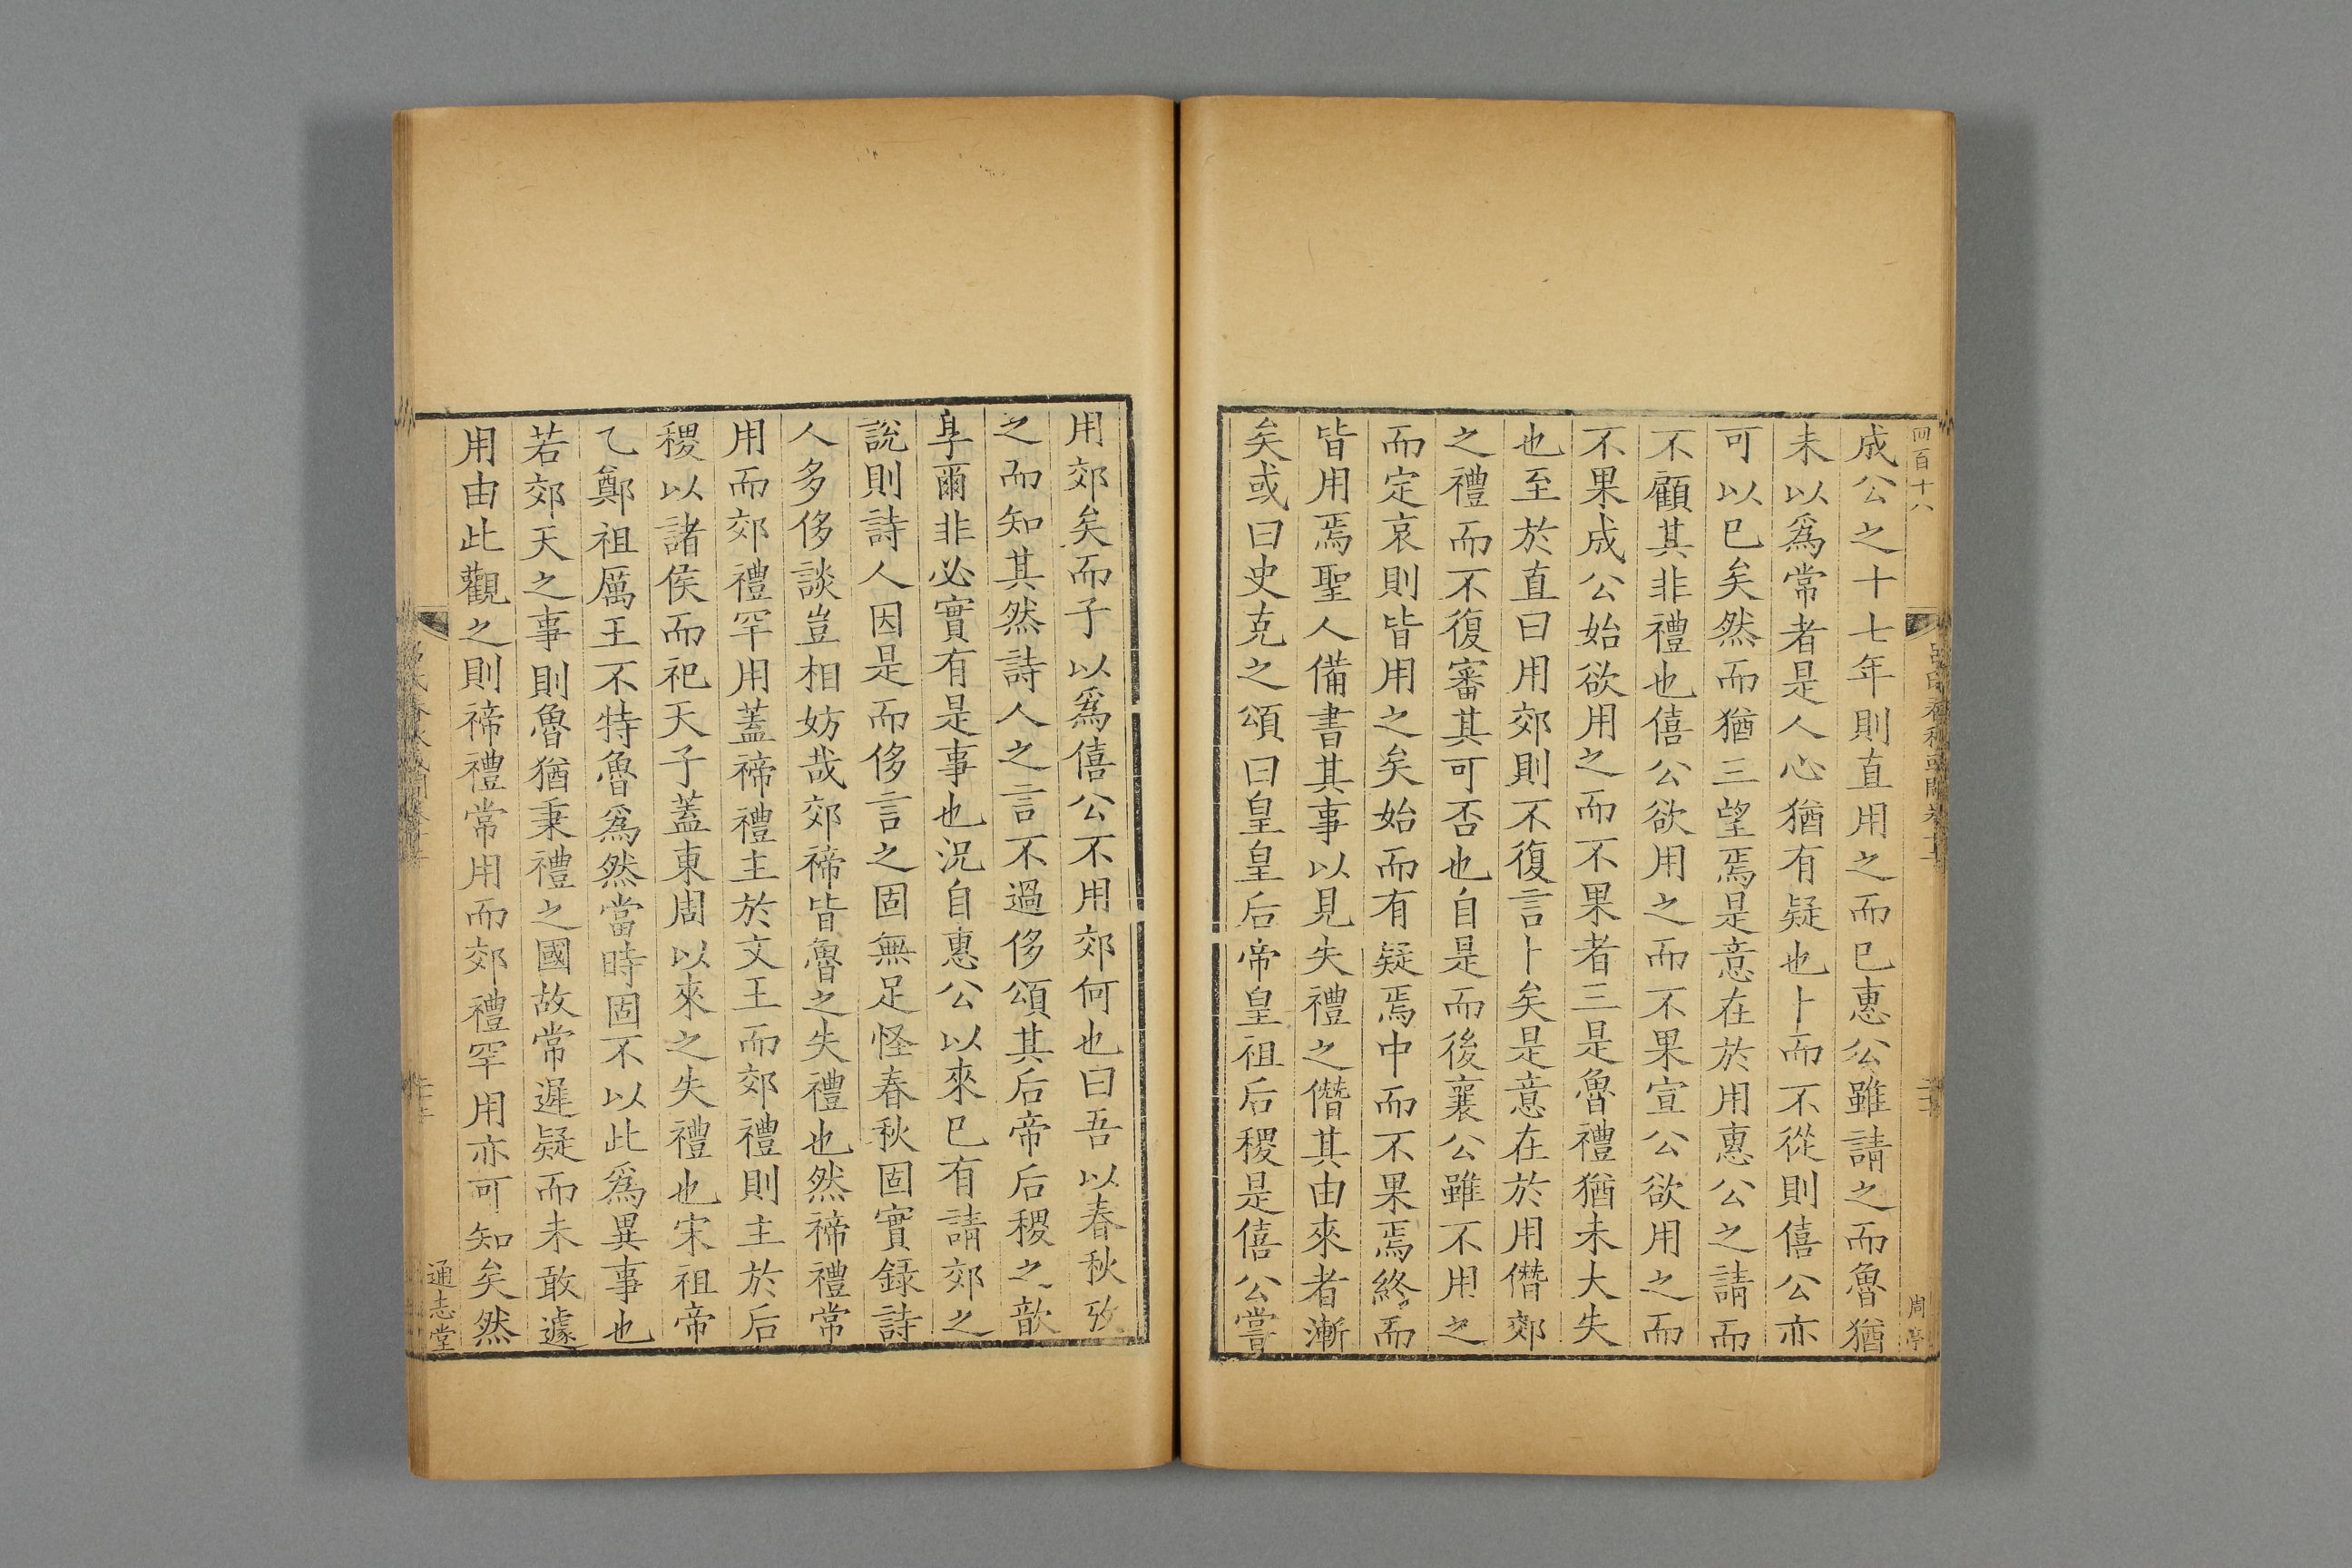 四百十八
呂氏春秋或問卷十
周亭
成公之十七年則直用之而已惠公雖請之而魯猶
未以爲常者是人心猶有疑也卜而不從則僖公亦
可以已矣然而猶三望焉是意在於用惠公之請而
不顧其非禮也僖公欲用之而不果宣公欲用之而
不果成公始欲用之而不果者三是魯禮猶未大失
也至於直曰用郊則不復言卜矣是意在於用僭郊
之禮而不復審其可否也自是而後襄公雖不用之
而定哀則皆用之矣始而有疑焉中而不果焉終而
皆用焉聖人備書其事以見失禮之僭其由來者漸
矣或曰史克之頌曰皇皇后帝皇祖后稷是僖公嘗
用郊矣而子以爲僖公不用郊何也曰吾以春秋攷
之而知其然詩人之言不過侈頌其后帝后稷之歆
享爾非必實有是事也況自惠公以來已有請郊之
說則詩人因是而侈言之固無足怪春秋固實録詩
人多侈談豈相妨哉郊禘皆魯之失禮也然禘禮常
用而郊禮罕用蓋禘禮主於文王而郊禮則主於后
稷以諸侯而祀天子蓋東周以來之失禮也宋祖帝
乙鄭祖厲王不特魯爲然當時固不以此爲異事也
若郊天之事則魯猶秉禮之國故常遲疑而未敢遽
用由此觀之則禘禮常用而郊禮罕用亦可知矣然
通志堂